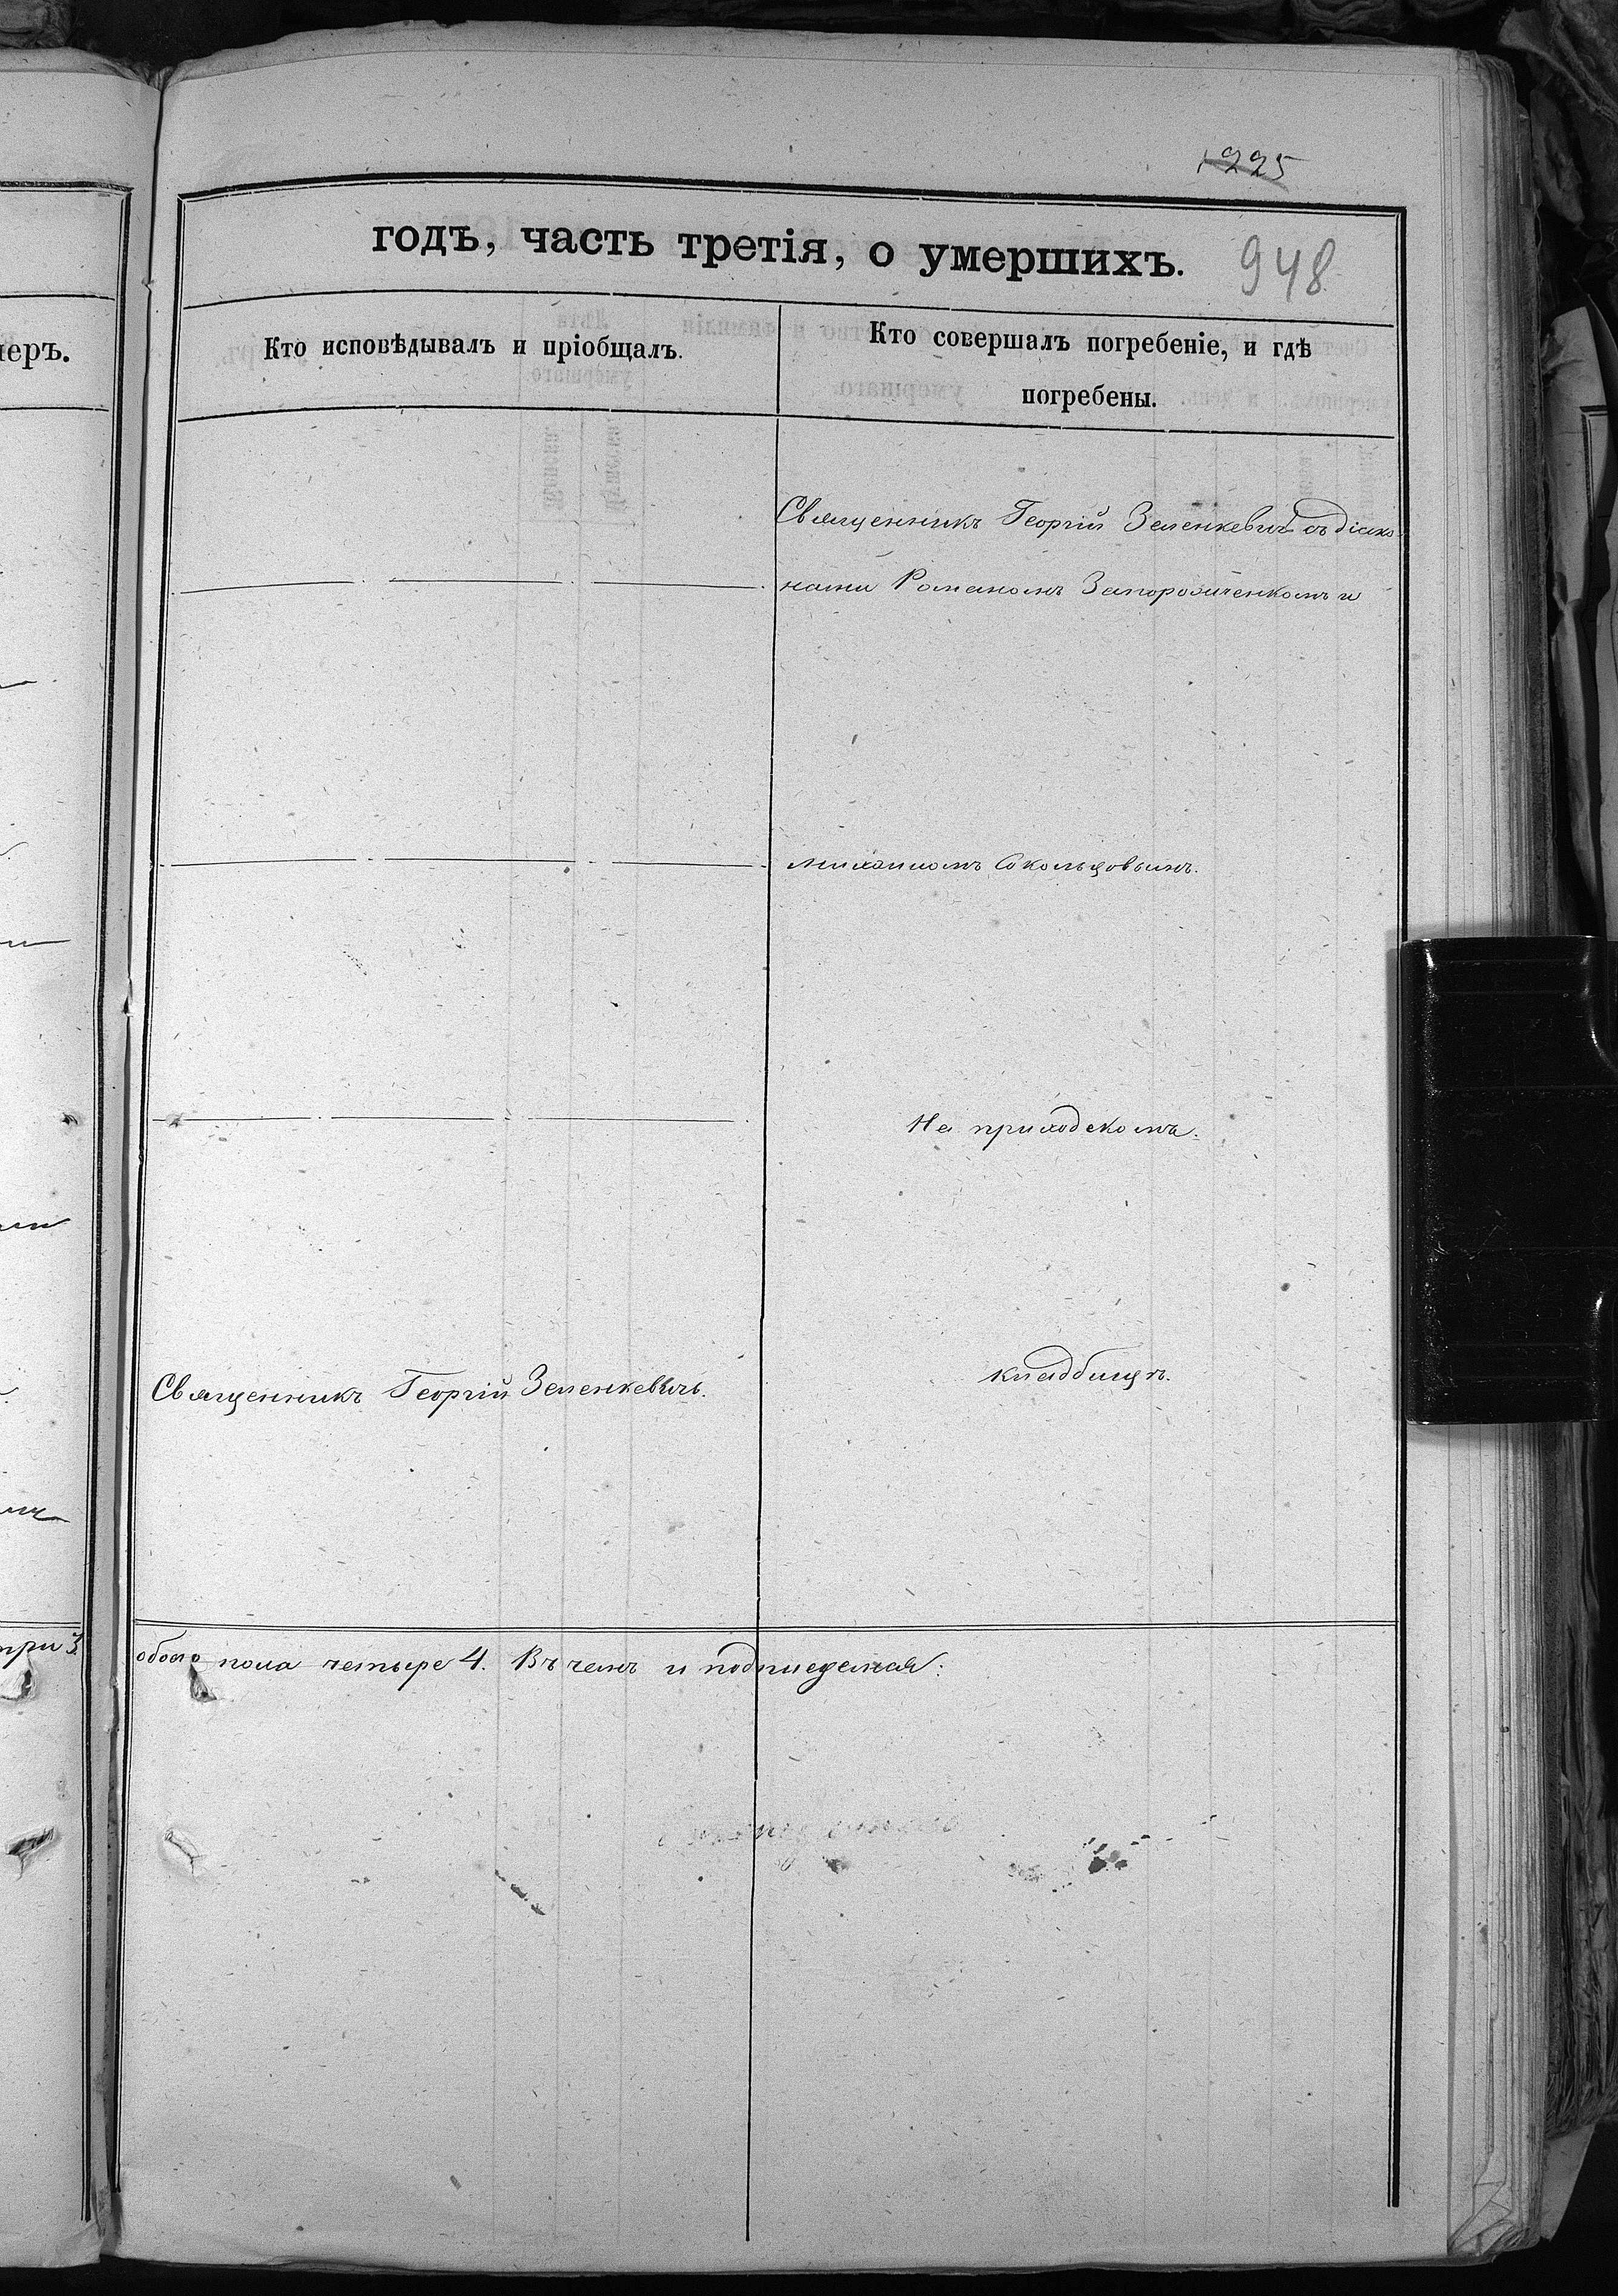 225
годъ, часть третія, о умершихъ. 948
Кто исповѣдывалъ и пріобщалъ.
Кто совершалъ погребеніе, и гдѣ
погребены.
Священникъ Георгій Зеленкевичъ съ діако-
нами Романомъ Запорожченкомъ и
Михаиломъ Сокольцовымъ.
На приходскомъ
Священникъ Георгій Зеленкевичъ.
кладбищѣ.
три 3.
обоего пола четыре 4. Въ чемъ и подписуемся: